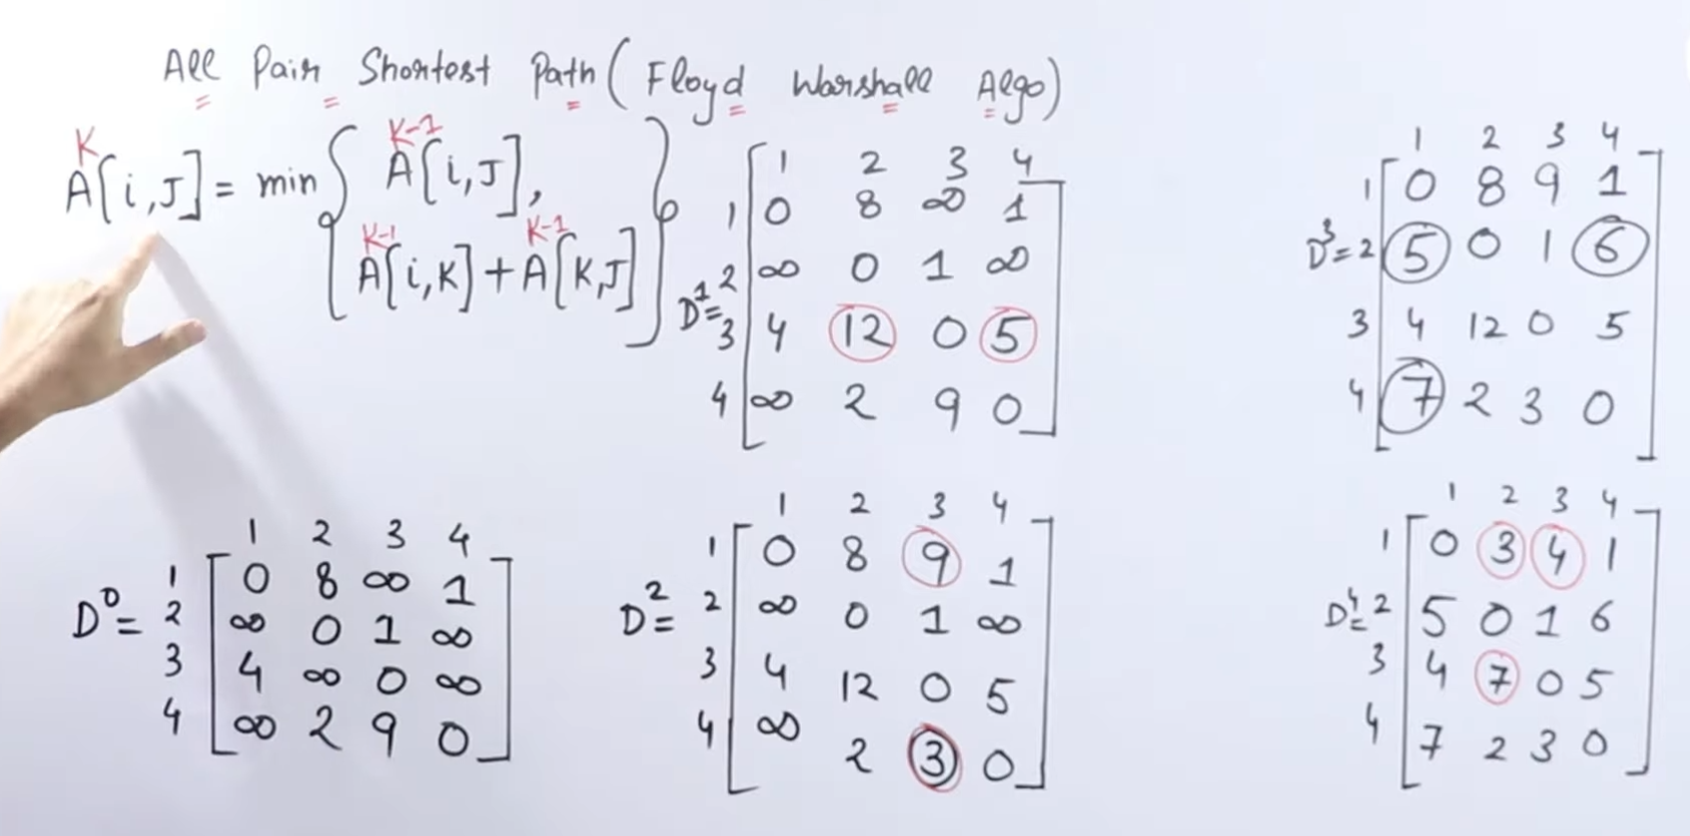 All Pair Shortest Path (Floyd Warshall Algo)
A^K[i,J] = min { A^K-1[i,J],
A^K-1[i,K] + A^K-1[K,J] }
1 2 3 4
1 0 8 ∞ 1
2 ∞ 0 1 ∞
D^1= 3 4 12 0 5
4 ∞ 2 9 0
1 2 3 4
1 0 8 9 1
D^3= 2 5 0 1 6
3 4 12 0 5
4 7 2 3 0
1 2 3 4
D^0= 1 0 8 ∞ 1
2 ∞ 0 1 ∞
3 4 ∞ 0 ∞
4 ∞ 2 9 0
1 2 3 4
1 0 8 9 1
D^2= 2 ∞ 0 1 ∞
3 4 12 0 5
4 ∞ 2 3 0
1 2 3 4
1 0 3 4 1
D^4= 2 5 0 1 6
3 4 7 0 5
4 7 2 3 0